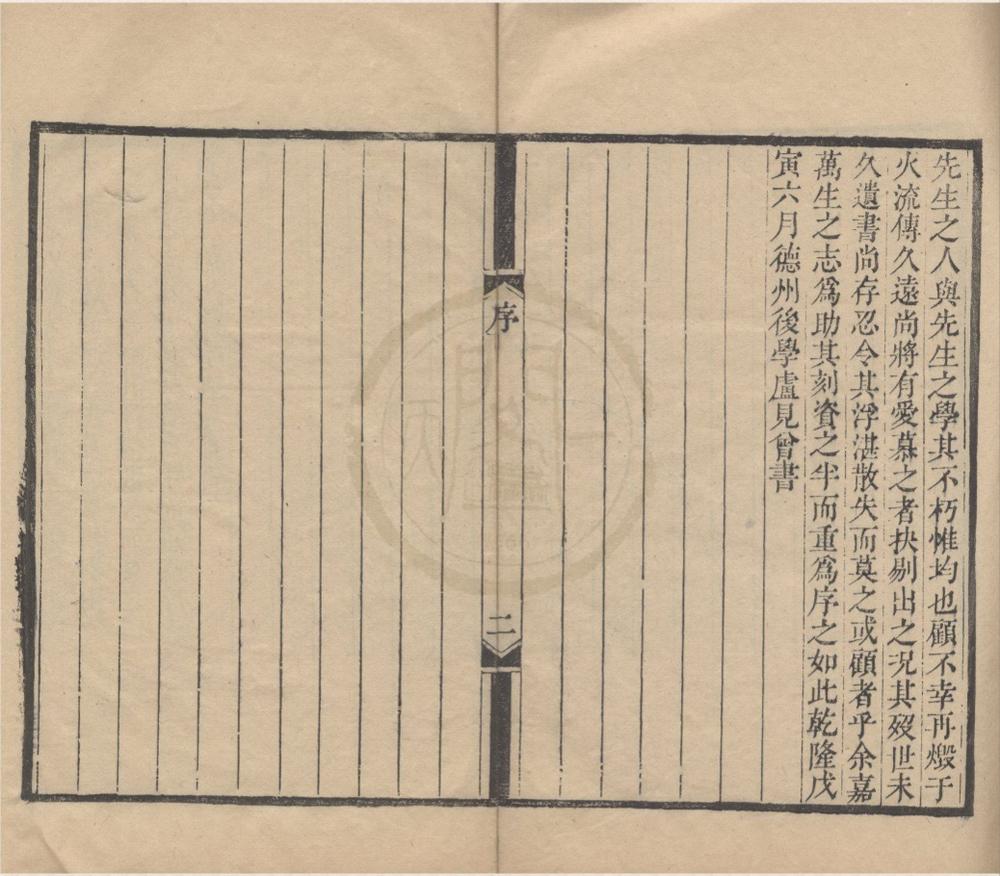 先生之人與先生之學其不朽惟均也顧不幸再燬于
火流傳久遠尚將有愛慕之者抉剔出之況其歿世未
久遺書尚存忍令其浮湛散失而莫之或顧者乎余嘉
萬生之志爲助其刻資之半而重爲序之如此乾隆戊
寅六月德州後學盧見曾書
序
二